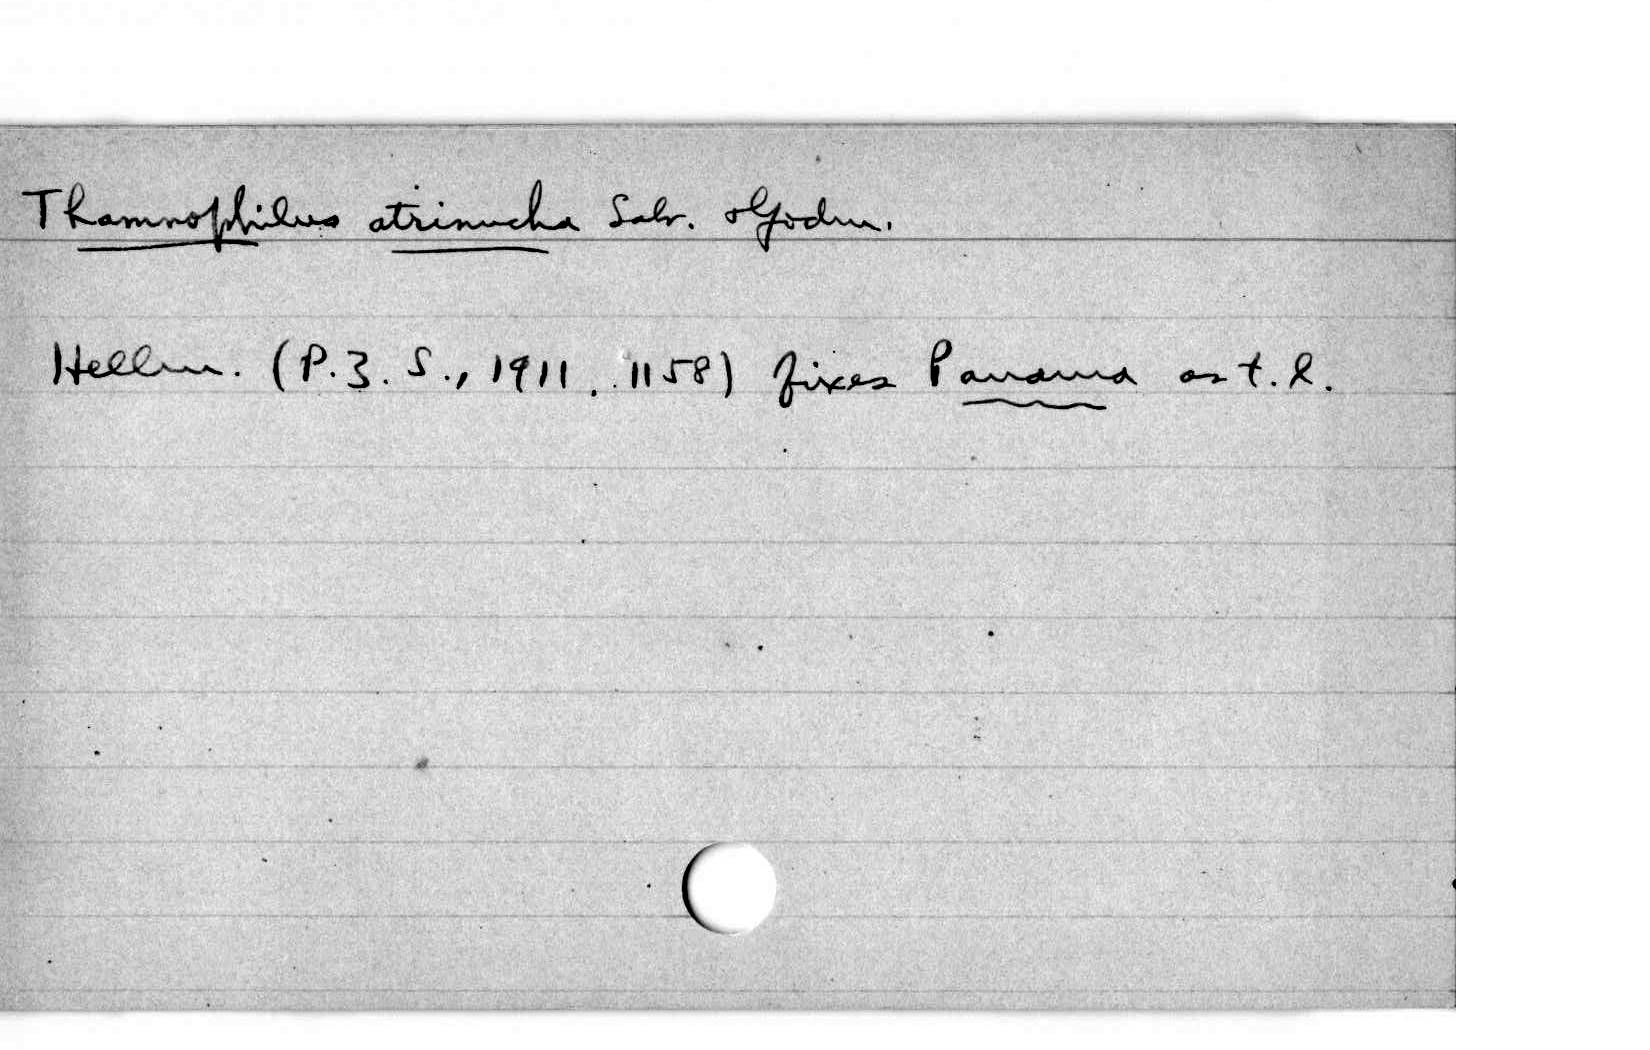 Thamnophilus atrinucha Salv. & Godm.
Hellm. (P.Z.S., 1911, 1158) fixes Panama as t.l.